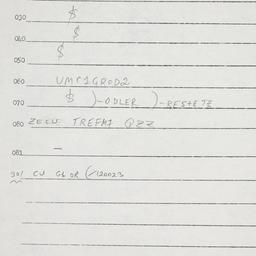 030 $
040 $
050 $
060 UMC1GROD2
070 $ )-ODLER )-RESTETZ
080 ZECU TREFM1 QZZ
081 –
301 CU GLOR (/120023